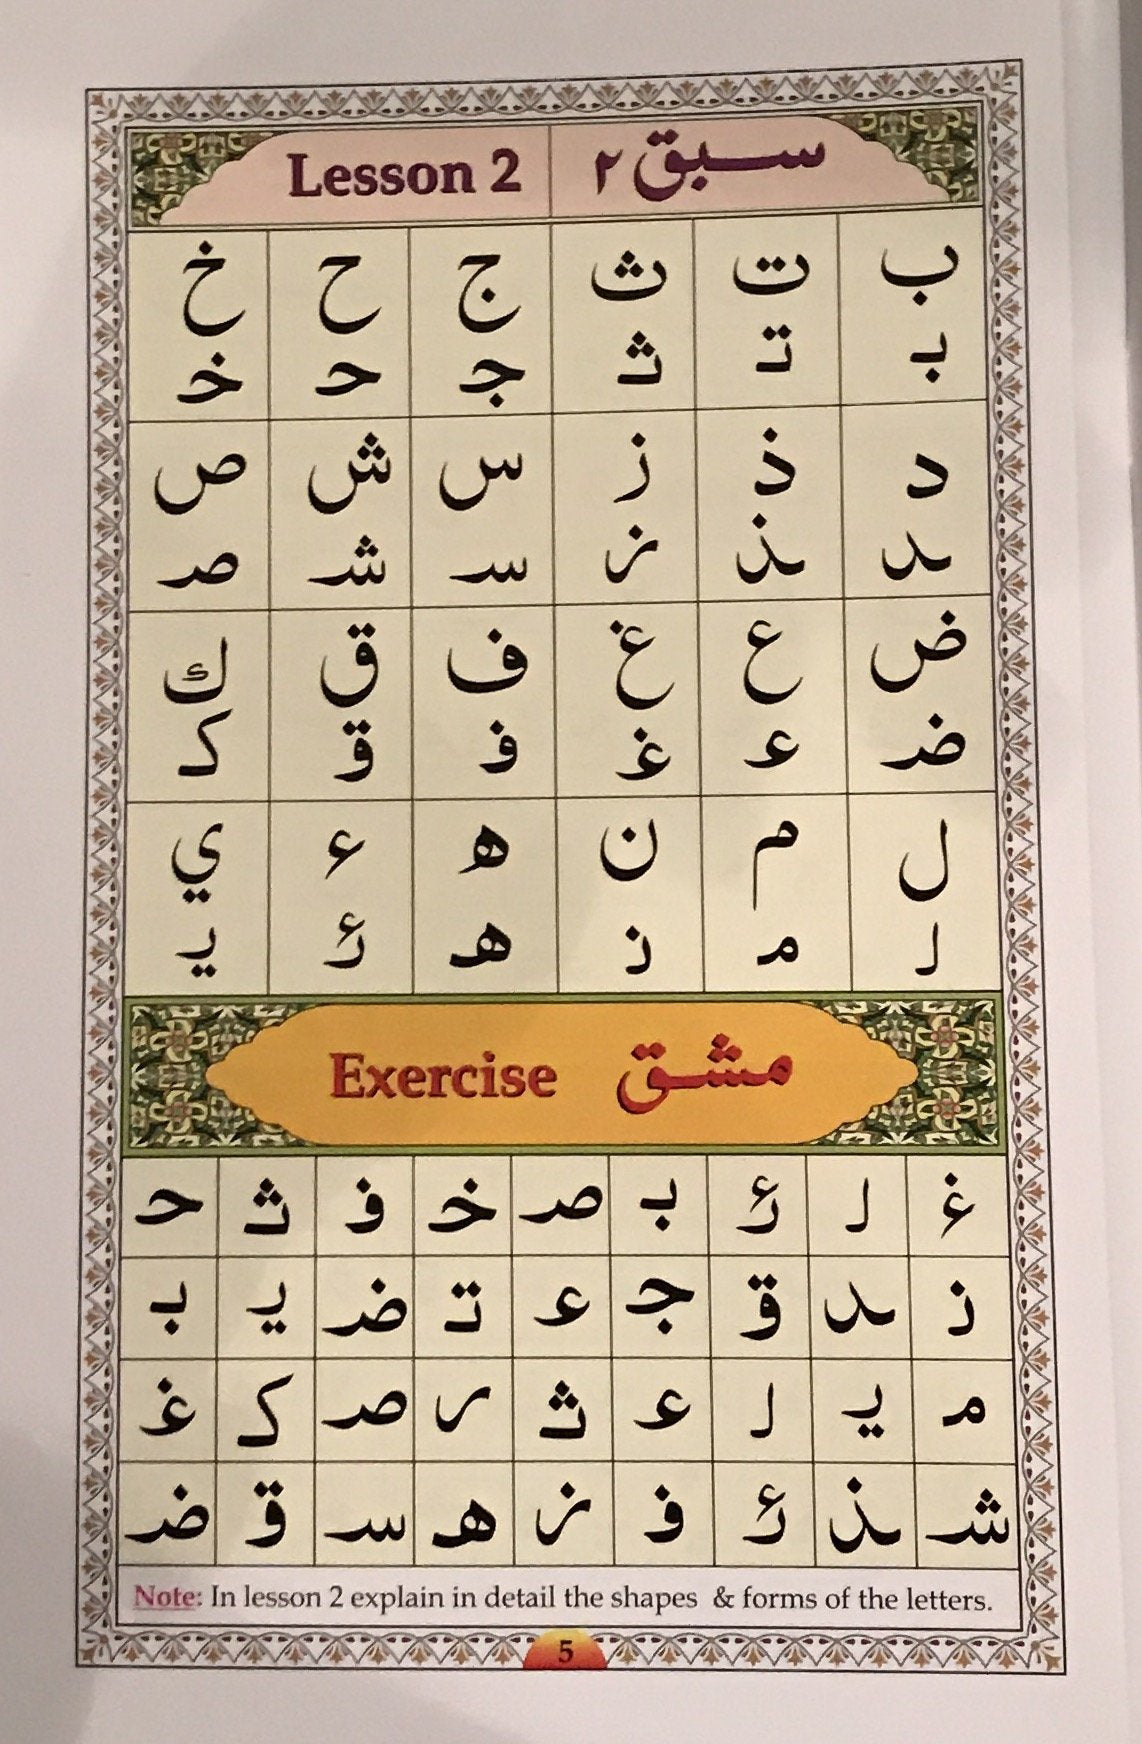 Lesson 2 سبق ٢
ب ت ث ج ح خ
بـ تـ ثـ جـ حـ خـ
د ذ ز س ش ص
ـد ـذ ـز سـ شـ صـ
ض ع غ ف ق ك
ضـ عـ غـ فـ قـ كـ
ل م ن ه ء ي
لـ مـ نـ هـ ئـ يـ
Exercise مشق
غـ لـ ئـ بـ صـ خـ فـ ثـ حـ
نـ ـد قـ جـ عـ تـ ضـ يـ بـ
مـ يـ لـ عـ ثـ ـر صـ كـ غـ
شـ ـذ ئـ فـ ـز هـ سـ قـ ضـ
Note: In lesson 2 explain in detail the shapes & forms of the letters.
5